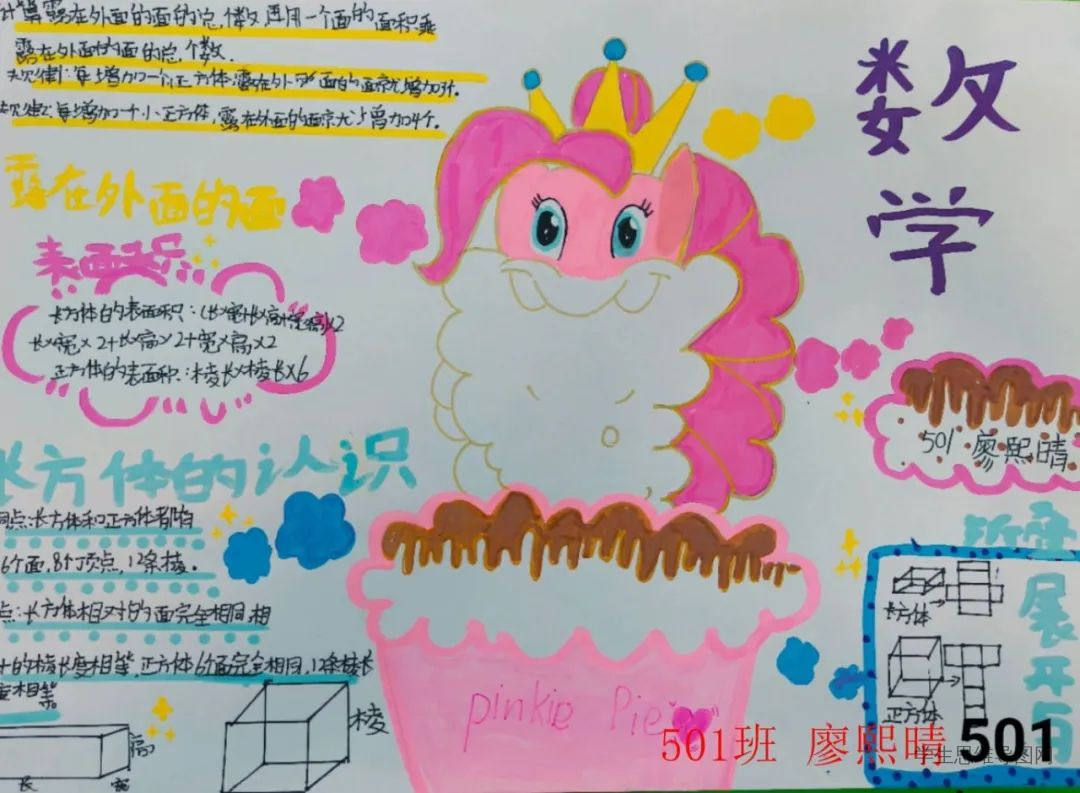 计算露在外面的面的总个数,再用一个面的面积乘
露在外面的面的总个数.
规律1:每增加一个正方体,露在外面的面就增加3个.
每增加一个小正方体,露在外面的面就增加4个.
露在外面的面
长方体的表面积:(长×宽+长×高+宽×高)×2
长×宽×2+长×高×2+宽×高×2
正方体的表面积:棱长×棱长×6
长方体的认识
同点:长方体和正方体都有
6个面,8个顶点,12条棱。
点:长方体相对的面完全相同,相
的棱长度相等,正方体6个面完全相同,12条棱长
度相等。
高
长
宽
棱
pinkie Pie
数学
501 廖熙晴
展开与
长方体
正方体
501班 廖熙晴 501
学生思维导图网